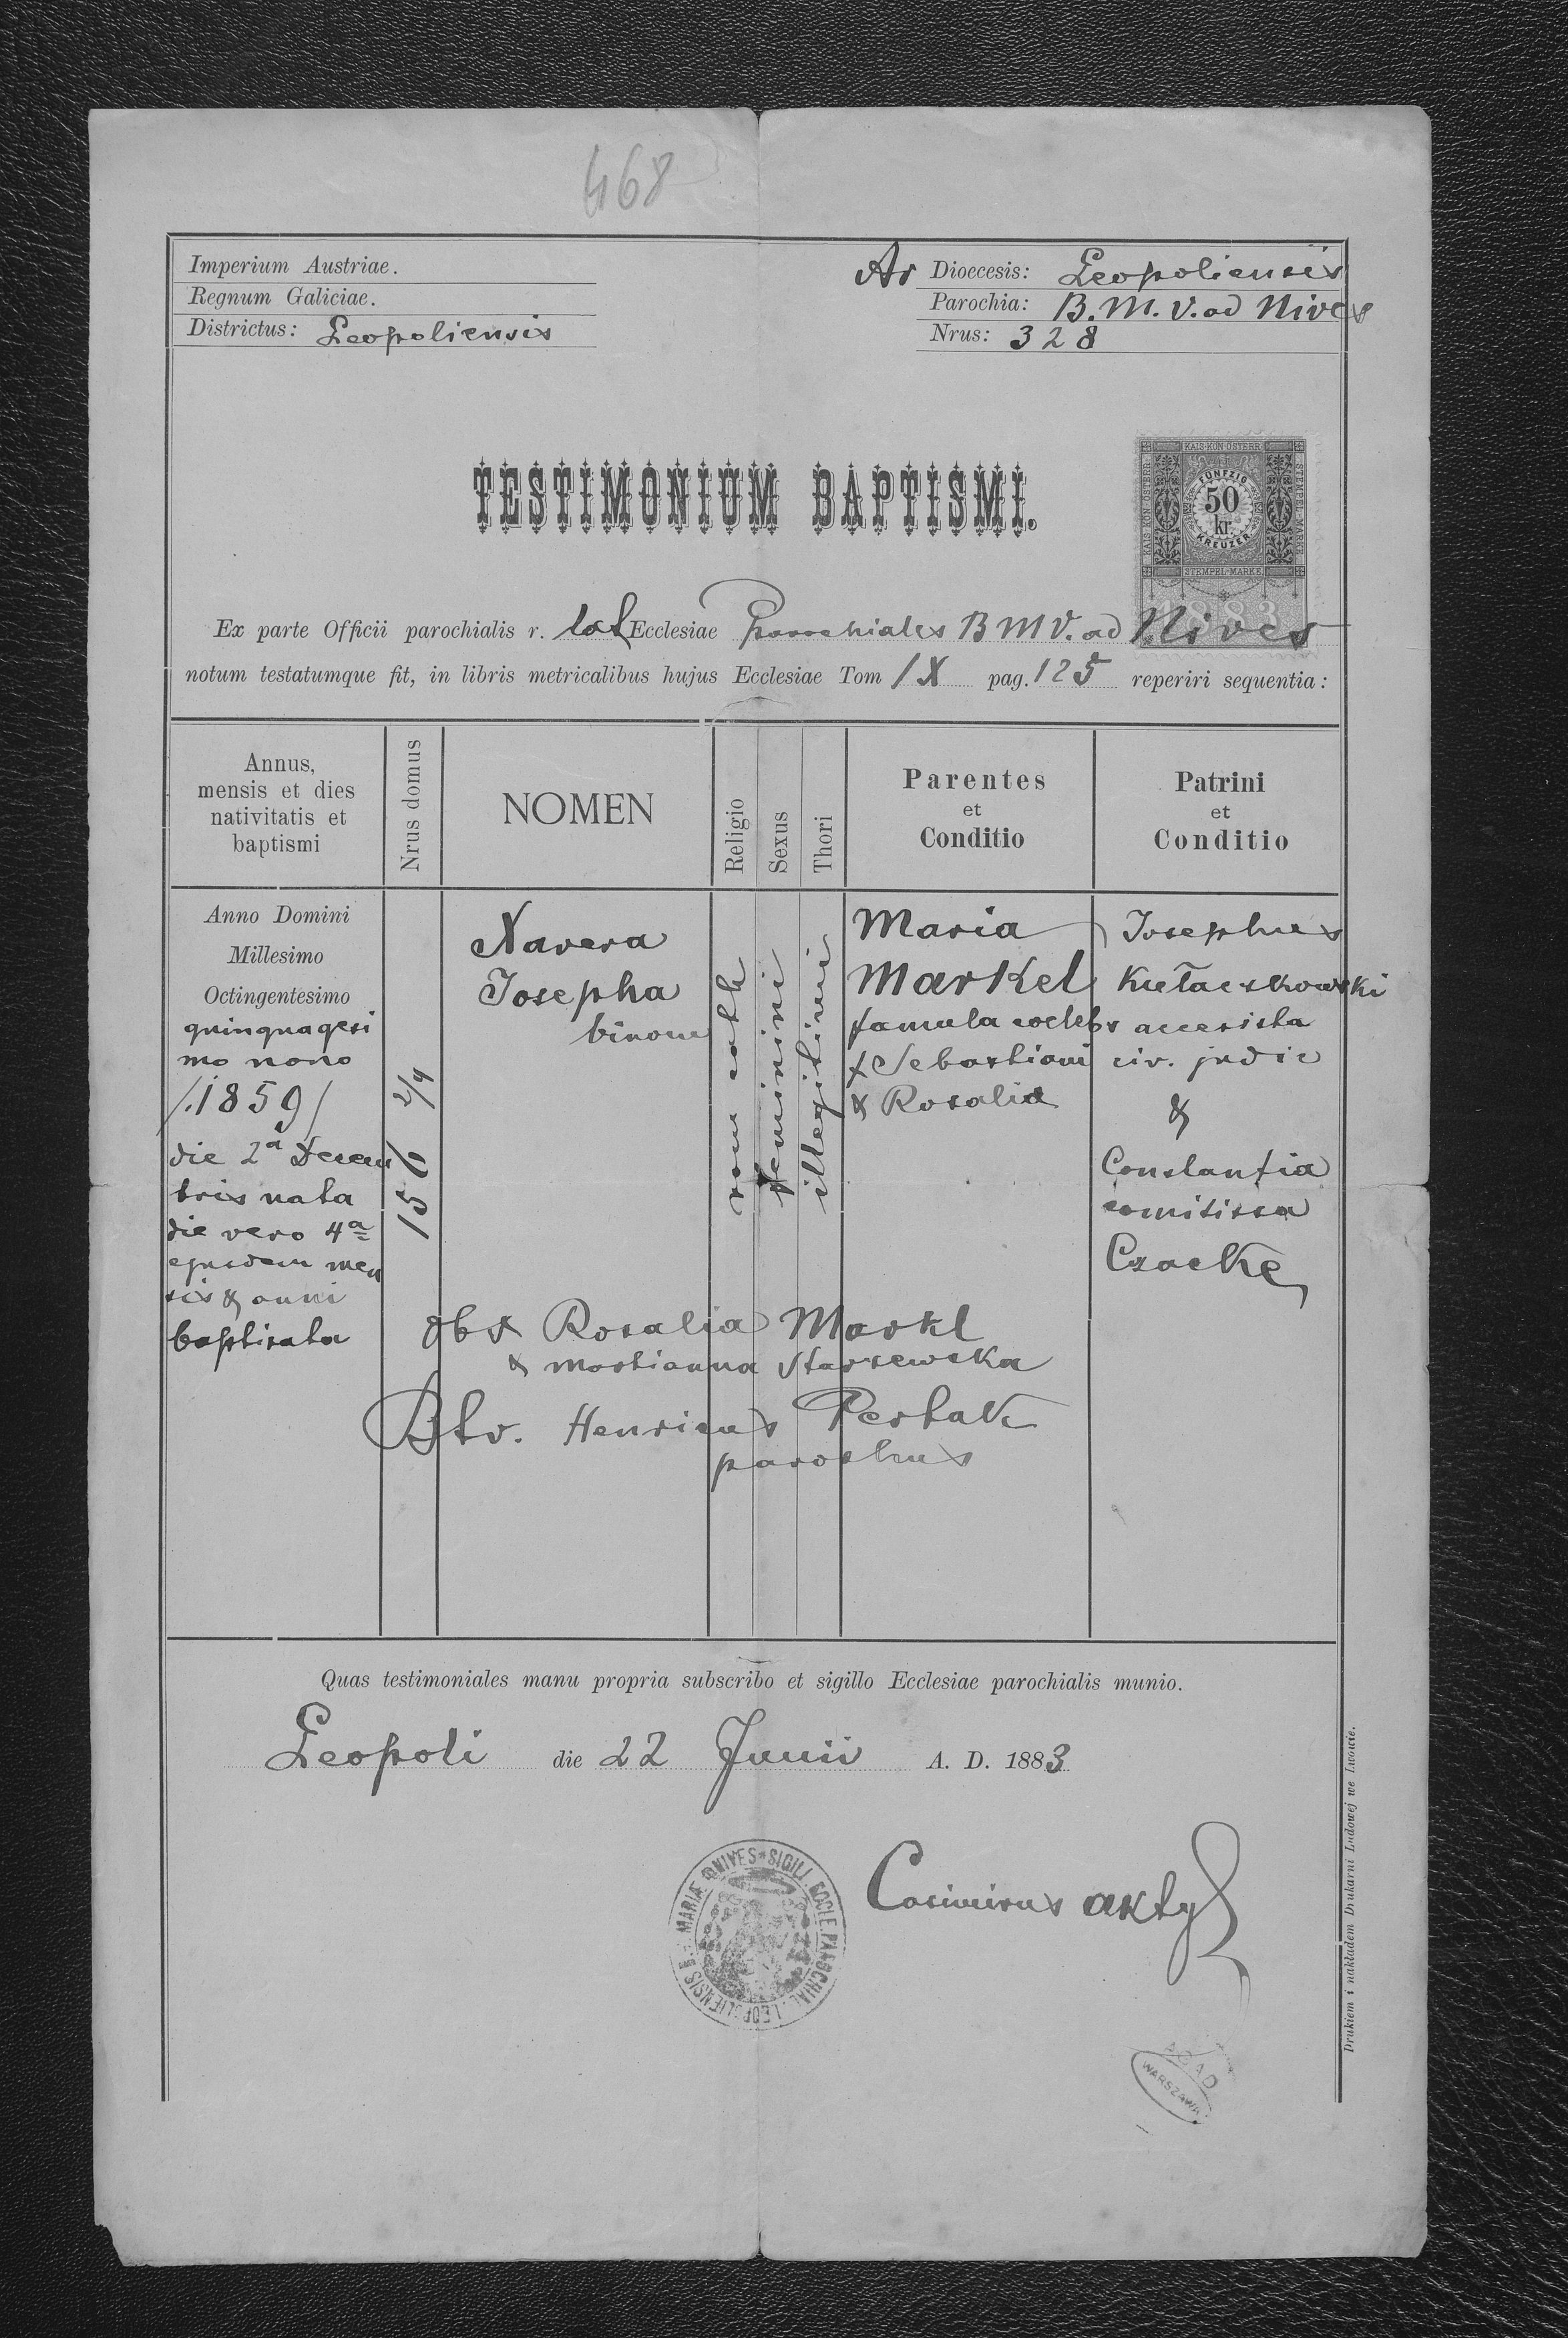 468
Imperium Austriae.
Regnum Galiciae.
Districtus: Leopoliensis
Ar Dioecesis: Leopoliensis
Parochia: B. M. V. ad Nives
Nrus: 328
TESTIMONIUM BAPTISMI.
KAIS. KÖN. ÖSTERR.
FÜNFZIG
50
kr.
KREUZER
STEMPEL-MARKE
1883
Ex parte Officii parochialis r. lat Ecclesiae Parochiales B M V. ad Nives
notum testatumque fit, in libris metricalibus hujus Ecclesiae Tom IX pag. 125 reperiri sequentia:
Annus,
mensis et dies
nativitatis et
baptismi
Nrus domus
NOMEN
Religio
Sexus
Thori
Parentes
et
Conditio
Patrini
et
Conditio
Anno Domini
Millesimo
Octingentesimo
quinquagesi
mo nono
/.1859/
die 2a Decem
bris nata
die vero 4a
ejusdem men
sis & anni
baptisata
156 2/4
Xavera
Josepha
binom
rom cath
feminini
illegitimi
Maria
Markel
famula coelebs
f Sebastiani
& Rosalia
Josephus
accesista
civ. judic
&
Constantia
comitissa
Czacke
Obst Rosalia Markl
& Martianna Starzewska
Btv. Henricus Pestak
parochus
Quas testimoniales manu propria subscribo et sigillo Ecclesiae parochialis munio.
Leopoli die 22 Junii A. D. 1883
Casimirus Aktyl
SIGILL ECCLE PAROCHIAL LEOPOLIENSIS B. MARIÆ ad NIVES
AGAD
WARSZAWA
Drukiem i nakładem Drukarni Ludowej we Lwowie.